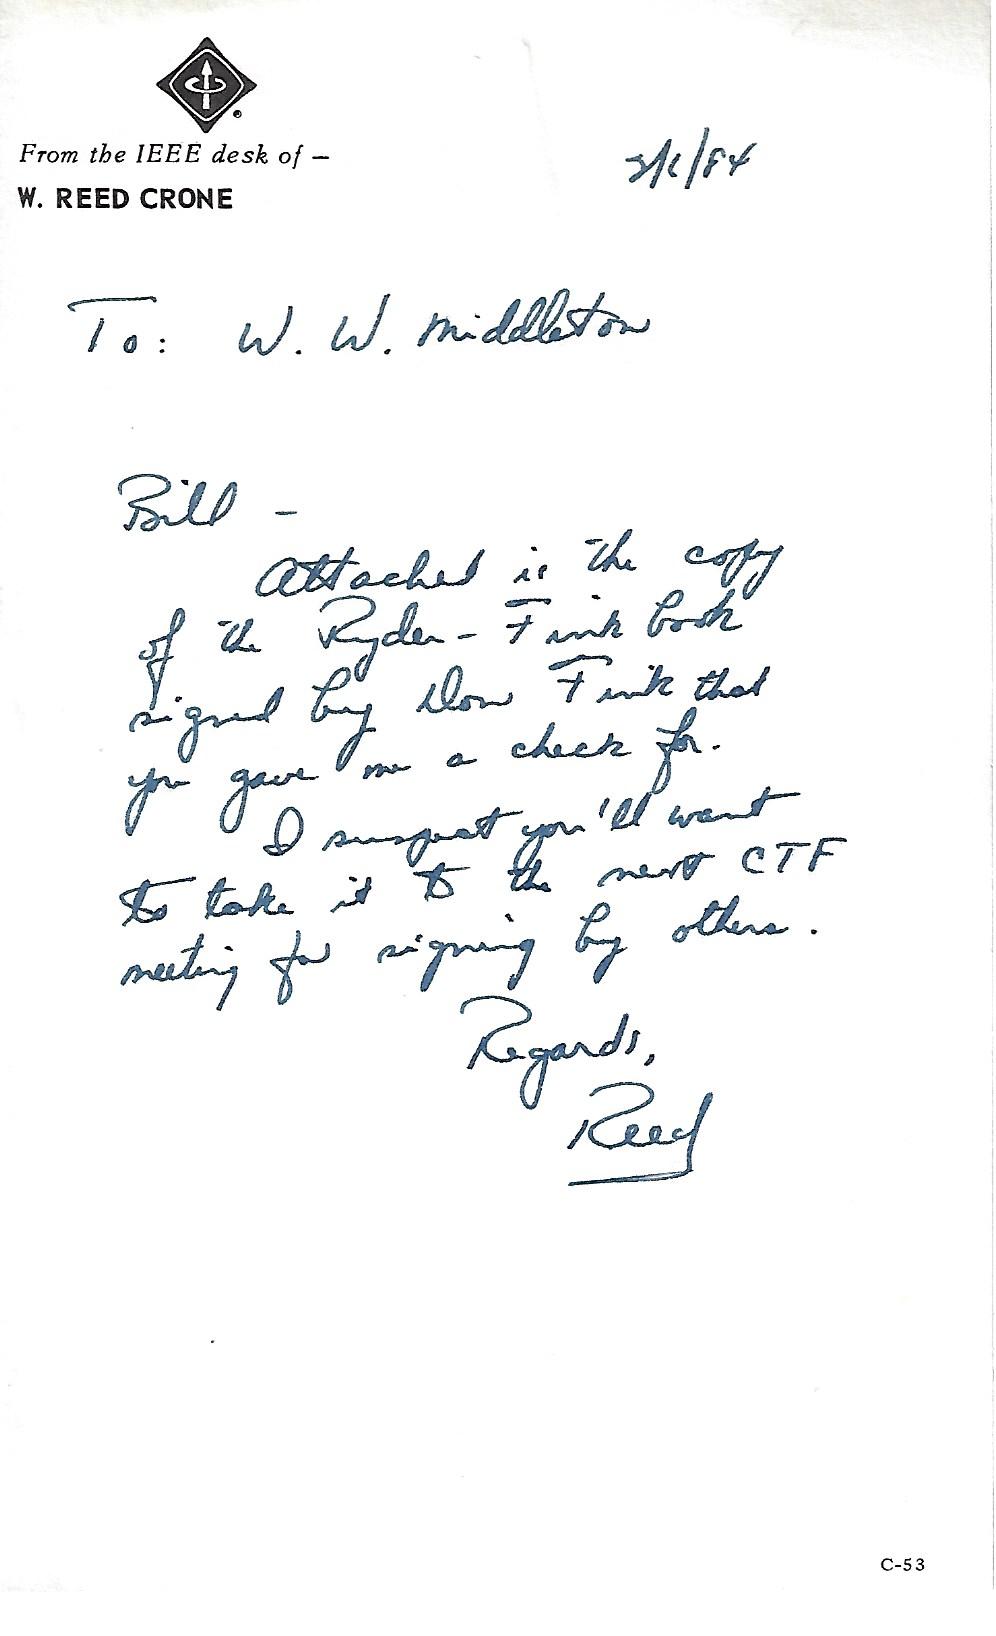 From the IEEE desk of –
W. REED CRONE
To: W. W. Middleton
Bill –
Attached is the copy
of the Ryder-Fink book
signed by Don Fink that
you gave me a check for.
I suspect you'll want
to take it to the next CTF
meeting for signing by others.
Regards,
Reed
C-53